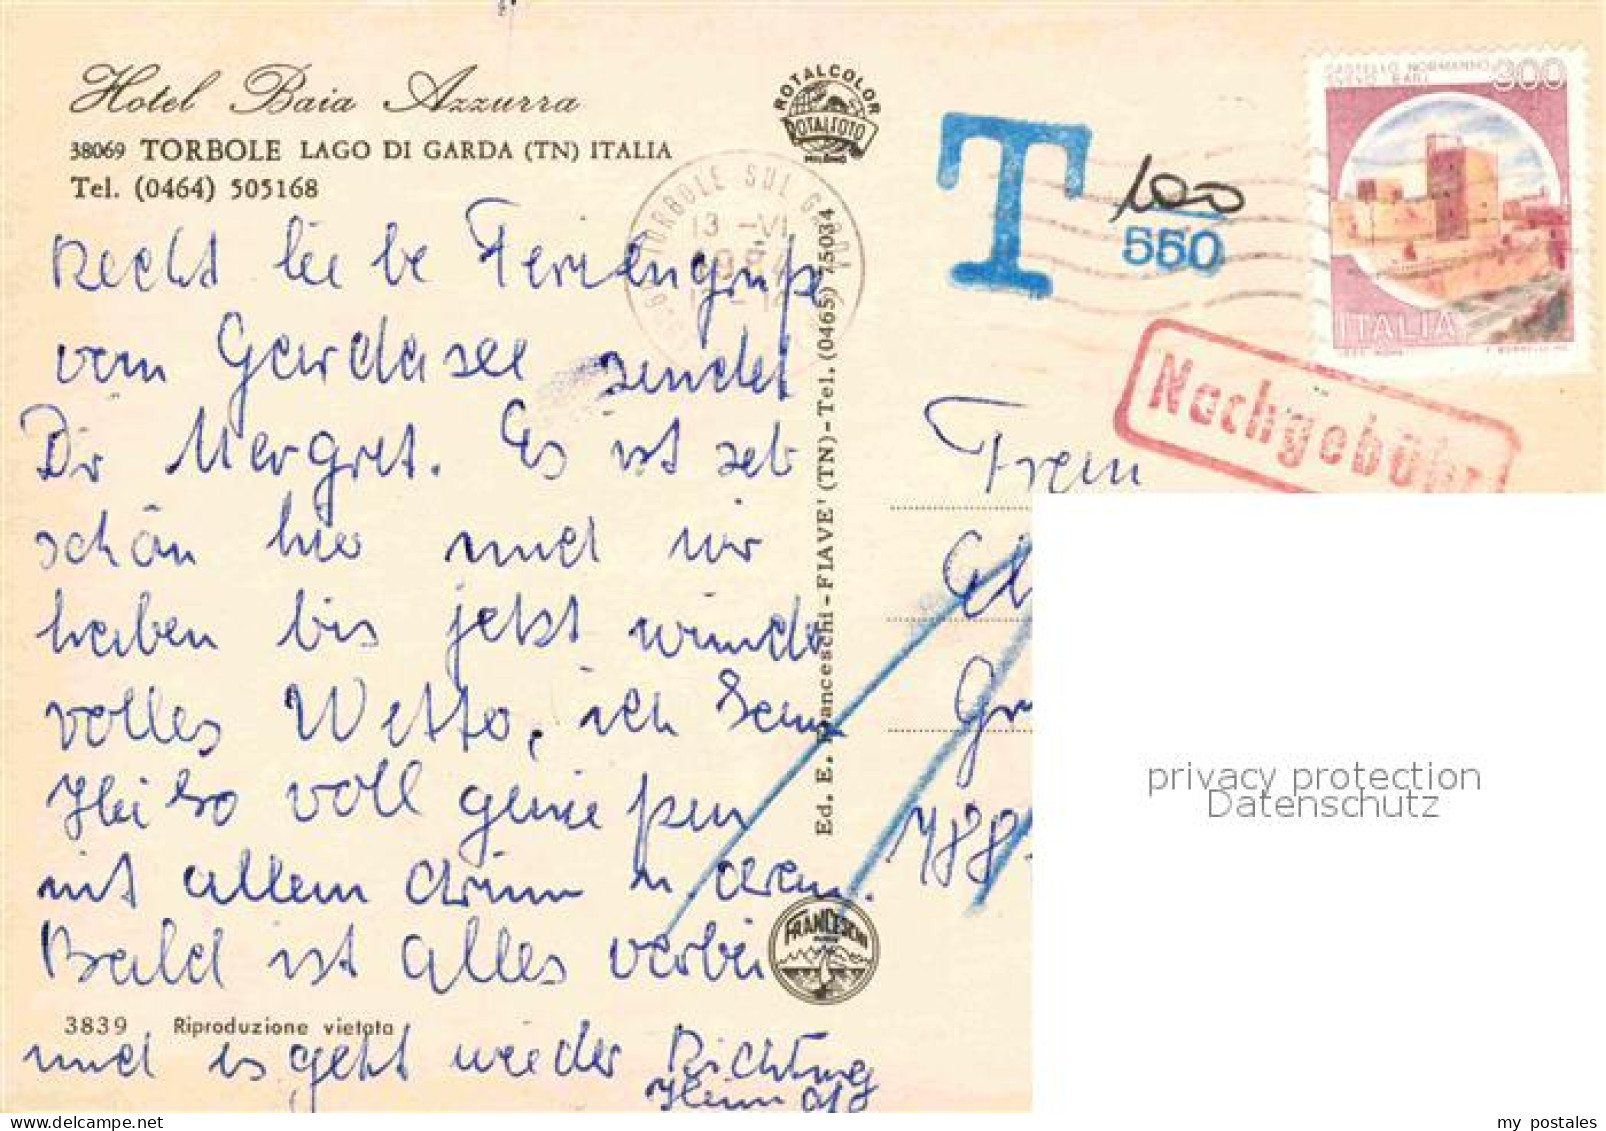 Hotel Baia Azzurra
38069 TORBOLE LAGO DI GARDA (TN) ITALIA
Tel. (0464) 505168
ROTALCOLOR
ROTALFOTO
MILANO
TORBOLE SUL GARDA
13 -VI
T
100
550
CASTELLO NORMANNO
SVEVO BARI
300
ITALIA
Nachgebühr
Recht liebe Feriengrüße
vom Gardasee sendet
Dir Margret. Es ist seh
schön hier und wir
haben bis jetzt wunder
volles Wetter, ich kann
Heiko voll genießen
mit allem drum u. dran.
Bald ist alles vorbei
und es geht wieder Richtung
Heimat
Frau
Gr
788
Ed. E. Franceschi - FIAVE' (TN) - Tel. (0465) 75034
FRANCESCHI
3839 Riproduzione vietata
privacy protection
Datenschutz
my postales
www.delcampe.net